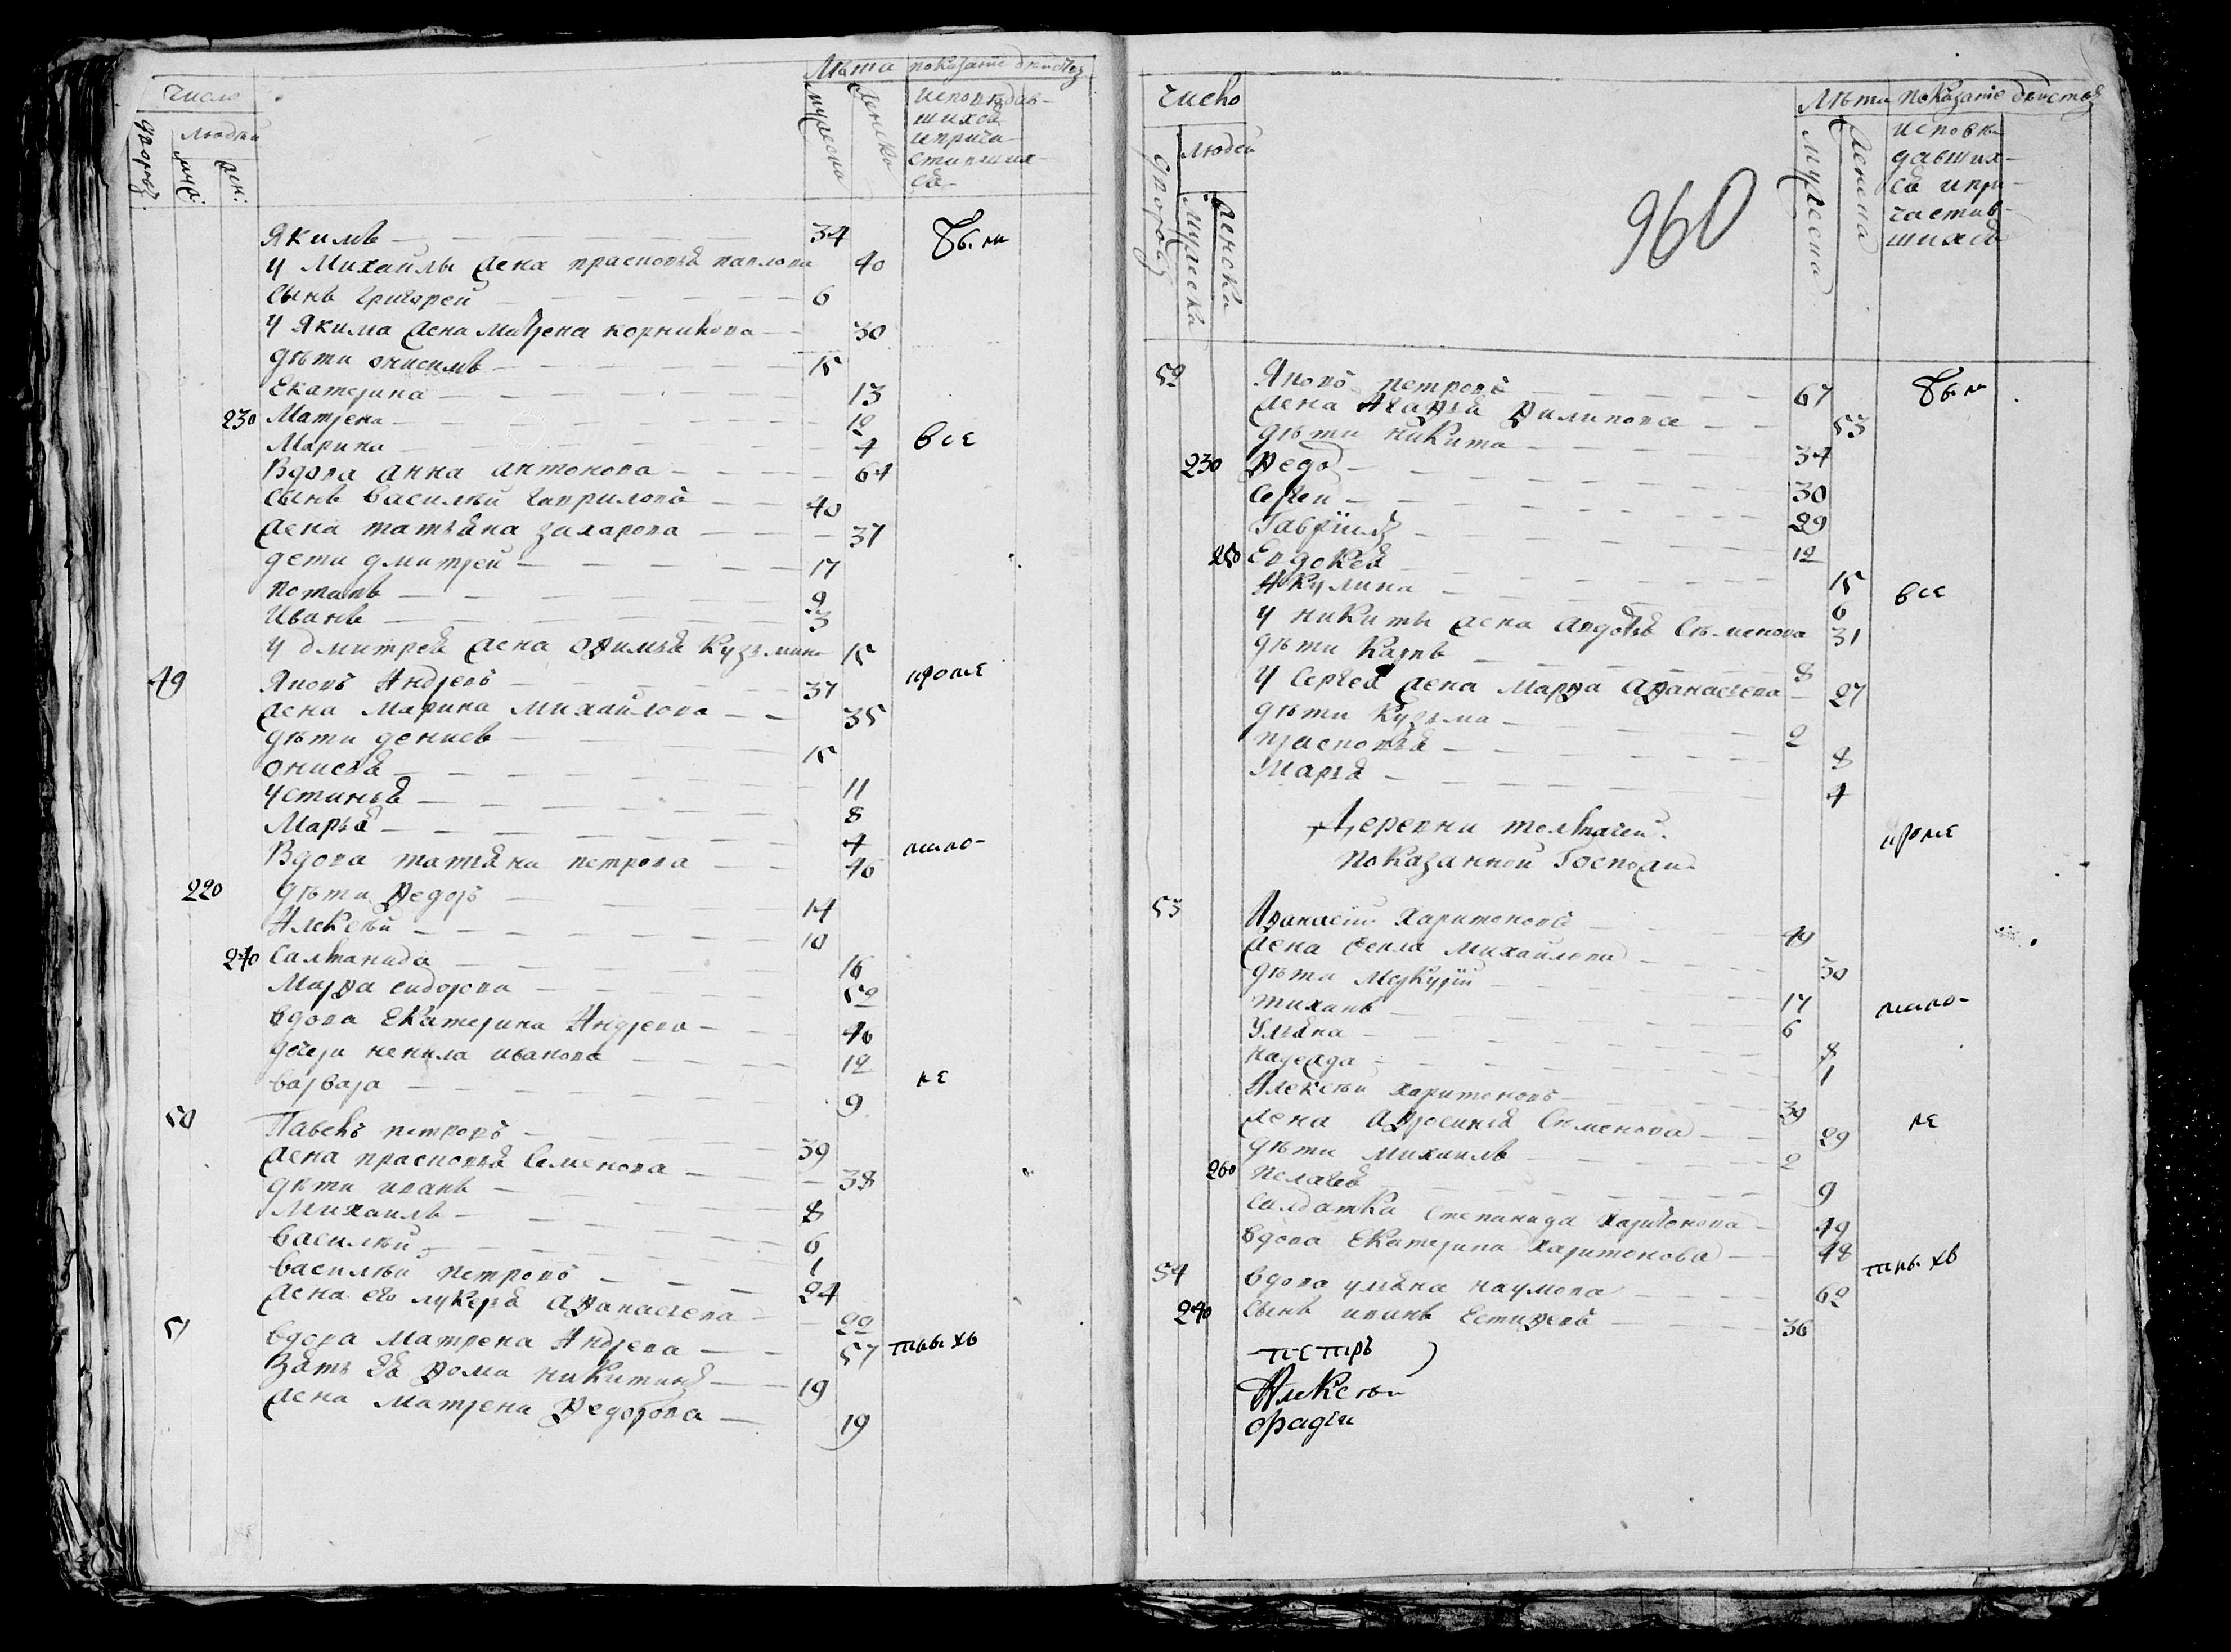 число
дворовъ
людей
муж:
жен:
Лѣта
мужеска
женска
показаніе дѣйствъ
исповѣдав-
шихся
и прича-
стивших-
ся
Якимъ 34 были
у Михайлы жена прасковья павлова 40
сынъ григорей 6
у Якима жена матрена корнилова 30
дѣти онисимъ 15
Екатерина 13
230 Матрена 12
Марина 4 все
Вдова анна антонова 64
сынъ василѣй гавриловъ 40
жена татьяна захарова 37
дети дмитрей 17
потапъ 9
Иванъ 3
у дмитрея жена офимья кузьмина 15
49 Яковъ Андревъ 37 кроме
жена марина михайлова 35
дѣти денисъ 15
онисья 11
устинья 8
Марья 4
Вдова татьяна петрова 46 мало-
220 дѣти Федоръ 14
Алексѣй 10
240 Салманида 16
Марфа сидорова 52
вдова Екатерина Андрева 40
дочери ненила иванова 12
варвара 9 не
50 Павелъ петровъ 39
жена прасковья Семенова 38
дѣти иванъ 8
Михаилъ 6
василѣй 1
василѣй петровъ 24
жена его лукерья афанасьева 22
51 вдова матрена Андрева 57 тныхъ
Зять Ея фома никитинъ 19
жена матрена Федорова 19
число
дворовъ
людей
мужеска
женска
960
Лѣта
мужеска
женска
показаніе дѣйствъ
исповѣ-
давших-
ся и при-
частив-
шихся
52 Яковъ петровъ 67 были
жена Агафья филипова 53
дѣти никита 34
230 Федоръ 30
Сергей 29
Гаврїилъ 12
250 Евдокея 15
Акулина 6 все
у никиты жена авдотья Сѣменова 31
дѣти Карпъ 8
у Сергея жена Марфа афанасьева 27
дѣти Кузьма 2
прасковья 8
Марья 4
Деревни толкачей кроме
показанной Госпожи
53 Афанасїй харитоновъ 49
жена фекла михайлова 30
дѣти Меркурїй 17
тиханъ 6 мало-
Ульяна 8
надежда 1
Алексѣй харитоновъ 30
жена афросинья Сѣменова 29 не
дѣти михаилъ 2
260 пелагея 9
салдатка степанида харитонова 49
вдова Екатерина харитонова 48
54 вдова ульяна наумова 62 тныхъ
240 сынъ иванъ Естифевъ 36
петръ
Алексѣй
фадѣи